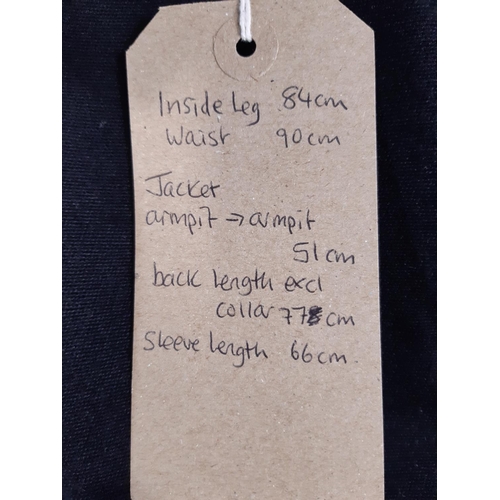 Inside Leg 84cm
Waist 90cm
Jacket
armpit → armpit
51cm
back length excl
collar 77cm
Sleeve length 66cm